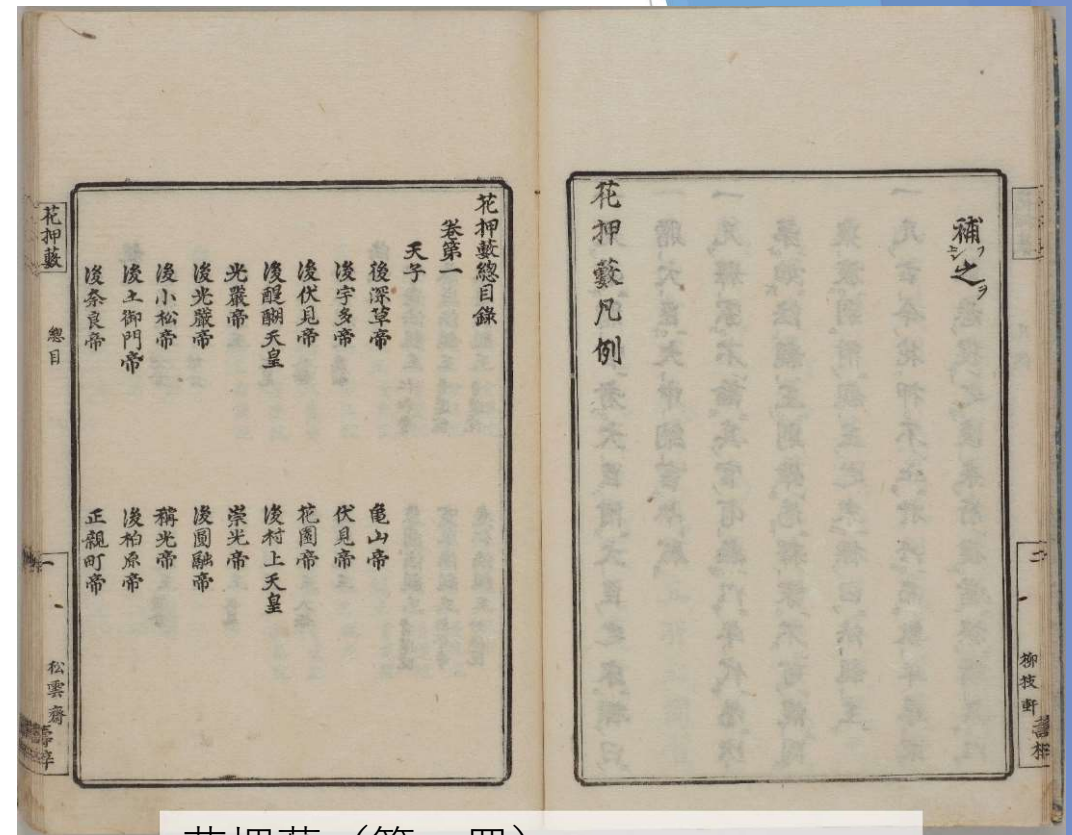 補之
フシ
ヲ
花押藪凡例
二
柳枝軒
花押藪總目録
卷第一
天子
後深草帝
亀山帝
後宇多帝
伏見帝
後伏見帝
花園帝
後醍醐天皇
後村上天皇
光嚴帝
崇光帝
後光嚴帝
後圓融帝
後小松帝
稱光帝
後土御門帝
後柏原帝
後奈良帝
正親町帝
花押藪
總目
一
松雲齋